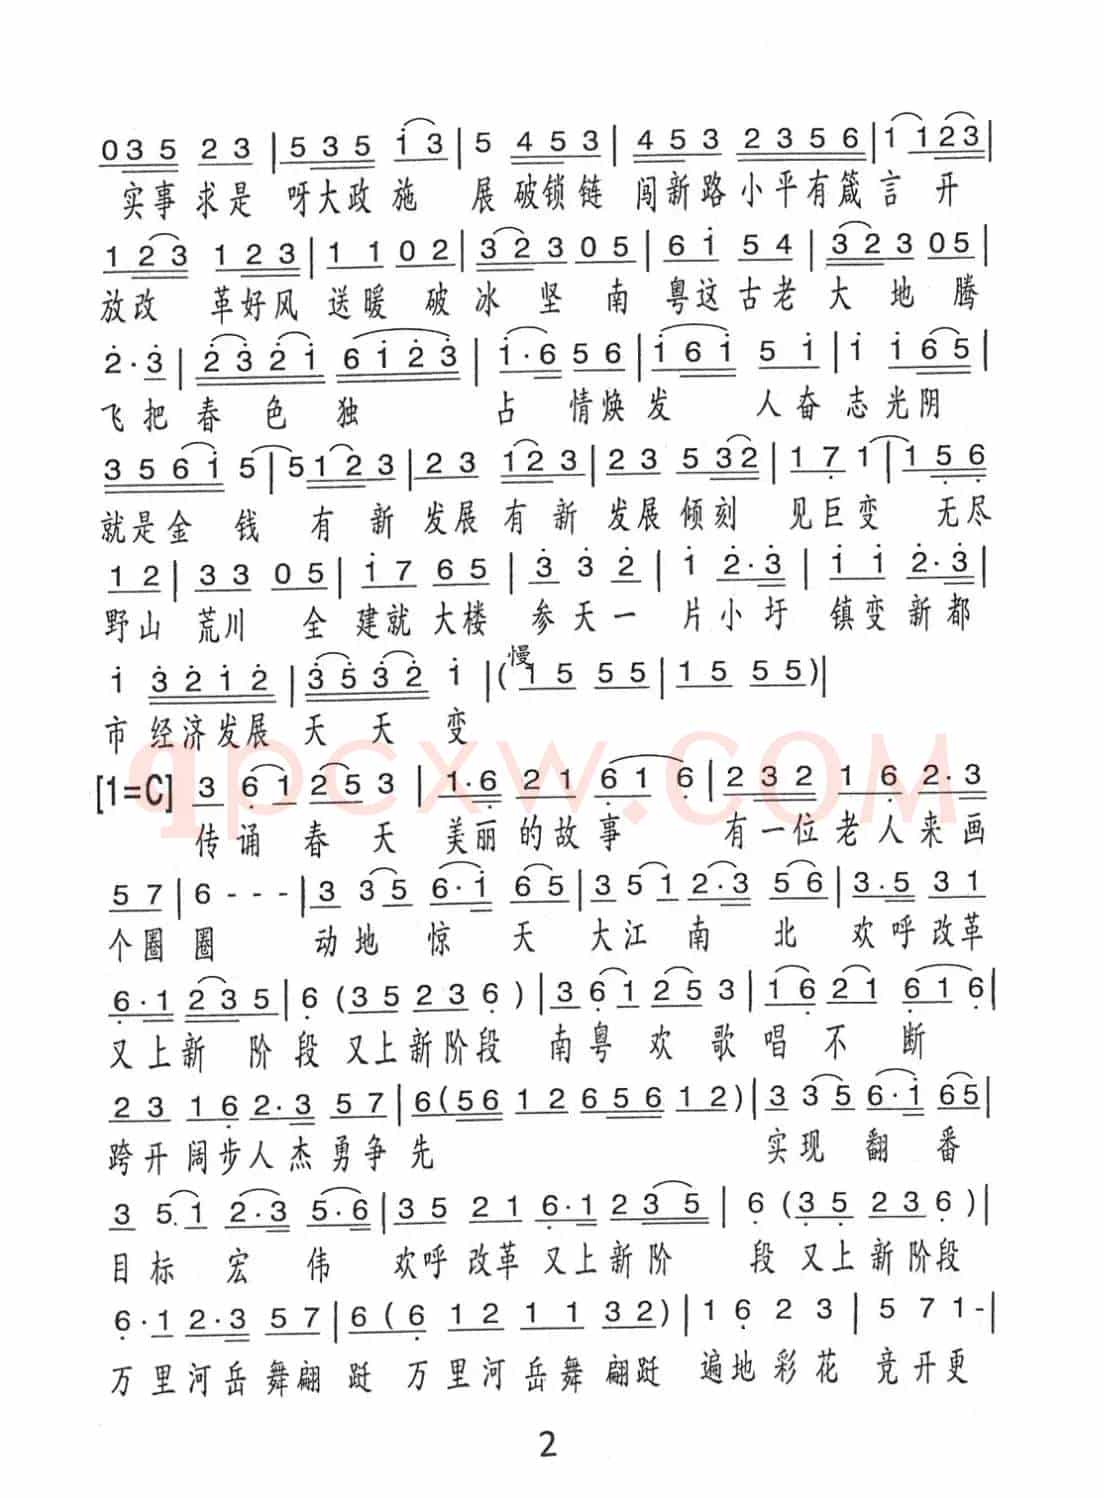 0 3 5 2 3 | 5 3 5 i 3 | 5 4 5 3 | 4 5 3 2 3 5 6 | 1 1 2 3 |
实事求是 呀大政施 展破锁链 闯新路小平有箴言 开
1 2 3 1 2 3 | 1 1 0 2 | 3 2 3 0 5 | 6 i 5 4 | 3 2 3 0 5 |
放改 革好风 送暖 破冰 坚 南 粤这古老 大 地 腾
2̇ · 3̇ | 2̇ 3̇ 2̇ i 6 i 2̇ 3̇ | i · 6 5 6 | i 6 i 5 i | i i 6 5 |
飞把春 色 独 占 情焕发 人奋志光阴
3 5 6 i 5 | 5 1 2 3 | 2 3 1 2 3 | 2 3 5 3 2 | 1 7̣ 1 | 1 5̣ 6̣
就是金 钱 有 新 发展有 新 发展倾刻 见巨变 无尽
1 2 | 3 3 0 5 | i 7 6 5 | 3̇ 3̇ 2̇ | i 2̇ · 3̇ | i i 2̇ · 3̇ |
野山 荒川 全 建就大楼 参天一 片小圩 镇变新都
i 3̇ 2̇ i 2̇ | 3̇ 5̇ 3̇ 2̇ i | ( 慢 1 5 5 5 | 1 5 5 5 ) |
市 经济发展 天 天 变
qpcxw.COM
[1=C] 3 6̣ 1 2 5 3 | 1 · 6̣ 2 1 6̣ 1 6̣ | 2 3 2 1 6̣ 2 · 3
传诵 春 天 美丽的故事 有一位老人来画
5 7 | 6 - - - | 3 3 5 6 · i 6 5 | 3 5 1 2 · 3 5 6 | 3 · 5 3 1
个圈 圈 动地 惊 天 大江 南 北 欢呼改革
6̣ · 1 2 3 5 | 6̣ ( 3 5 2 3 6̣ ) | 3 6̣ 1 2 5 3 | 1 6̣ 2 1 6̣ 1 6̣ |
又上新 阶 段 又上新阶段 南粤 欢 歌 唱 不 断
2 3 1 6̣ 2 · 3 5 7 | 6 ( 5 6 1 2 6 5 6 1 2 ) | 3 3 5 6 · i 6 5 |
跨开阔步人杰勇争先 实现 翻 番
3 5 1 2 · 3 5 · 6 | 3 5 2 1 6̣ · 1 2 3 5 | 6̣ ( 3 5 2 3 6̣ ) |
目标 宏 伟 欢呼改革又上新阶 段 又上新阶段
6̣ · 1 2 · 3 5 7 | 6 ( 6̣ 1 2 1 1 3 2 ) | 1 6̣ 2 3 | 5 7 1 - |
万里河岳舞翩 跹 万里河岳舞翩跹 遍地彩花 竞开更
2